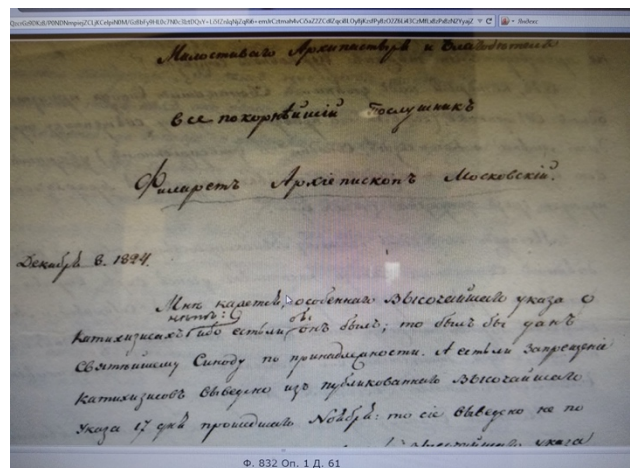 Милостиваго Архипастыря и Благодетеля
всепокорнѣйшій Послушникъ
Филаретъ Архіепископъ Московскій.
Декабря 8. 1824.
Мнѣ кажется, особеннаго Высочайшаго указа о
нѣтъ: бы
Катихизисахъ ибо естьли онъ былъ; то былъ бы данъ
Святѣйшему Синоду по принадлежности. А естьли запрещеніе
Катихизисовъ выведено изъ публикованнаго Высочайшаго
Указа 17 дня прошедшаго Ноября: то сіе выведено не по
указа
Ф. 832 Оп. 1 Д. 61
Яндекс